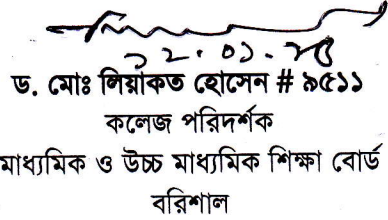 ১২.০১.২৫
ড. মোঃ লিয়াকত হোসেন # ৯৫১১
কলেজ পরিদর্শক
মাধ্যমিক ও উচ্চ মাধ্যমিক শিক্ষা বোর্ড
বরিশাল